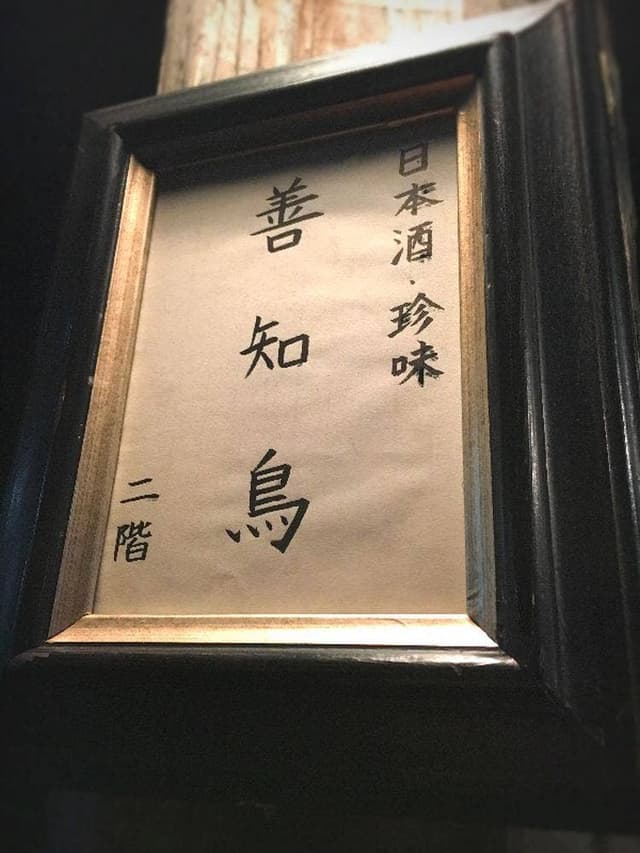 日本酒・珍味
善知鳥
二階